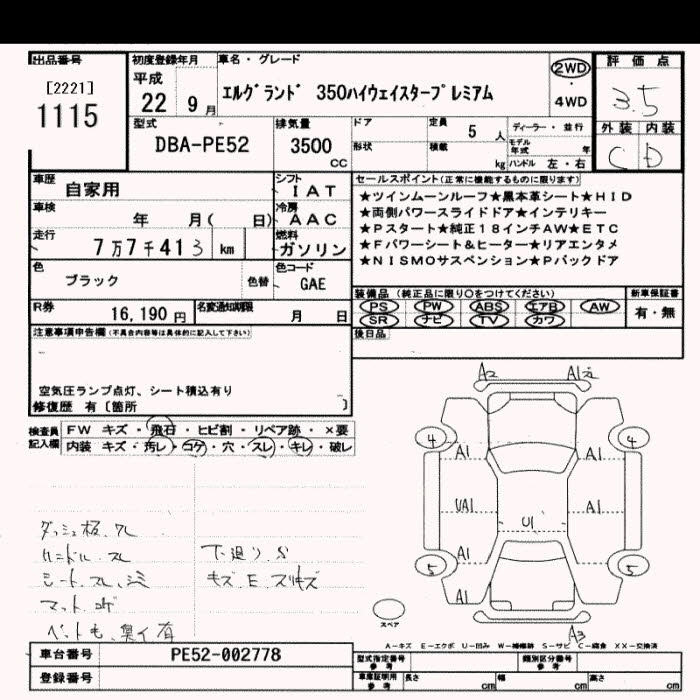 出品番号
[2221]
1115
初度登録年月
平成
22 9 月
車名・グレード
エルグランド 350ハイウェイスタープレミアム
2WD
・
4WD
評価点
3.5
外装 内装
C D
型式
DBA-PE52
排気量
3500
CC
ドア
形状
定員 5 人
積載 kg
ディーラー・並行
モデル年式 年
ハンドル 左・右
車歴
自家用
シフト
IAT
車検
年 月( 日)
冷房
AAC
走行
7万7千413 km
燃料
ガソリン
色
ブラック
色替
色コード
GAE
R券
16,190 円
名変通知期限
月 日
セールスポイント(正常に機能するものに限ります)
★ツインムーンルーフ★黒本革シート★HID
★両側パワースライドドア★インテリキー
★Pスタート★純正18インチAW★ETC
★Fパワーシート&ヒーター★リアエンタメ
★NISMOサスペンション★Pバックドア
装備品(純正品に限り○をつけてください)
PS PW ABS エアB AW
SR ナビ TV カワ
新車保証書
有・無
後日品
注意事項申告欄(不具合内容等は具体的に記入して下さい)
空気圧ランプ点灯、シート積込有り
修復歴 有〔箇所 〕
検査員
記入欄
FW キズ・飛石・ヒビ割・リペア跡・×要
内装 キズ・汚レ・コゲ・穴・スレ・キレ・破レ
ダッシュ板、スレ
ハンドル スレ
シート、スレ、シミ
マット コゲ
ペット毛、臭イ有
下廻り S
キズ E スリキズ
A2 A1
4 4
A1 A1
UA1 U1 A1
A1
5 5
A1
A3
スペア
A－キズ E－エクボ U－凹み W－補修跡 S－サビ C－腐食 XX－交換済
車台番号 PE52-002778
登録番号
型式指定番号
参考
類別区分番号
参考
車庫証明用
参考
長さ cm 幅 cm 高さ cm